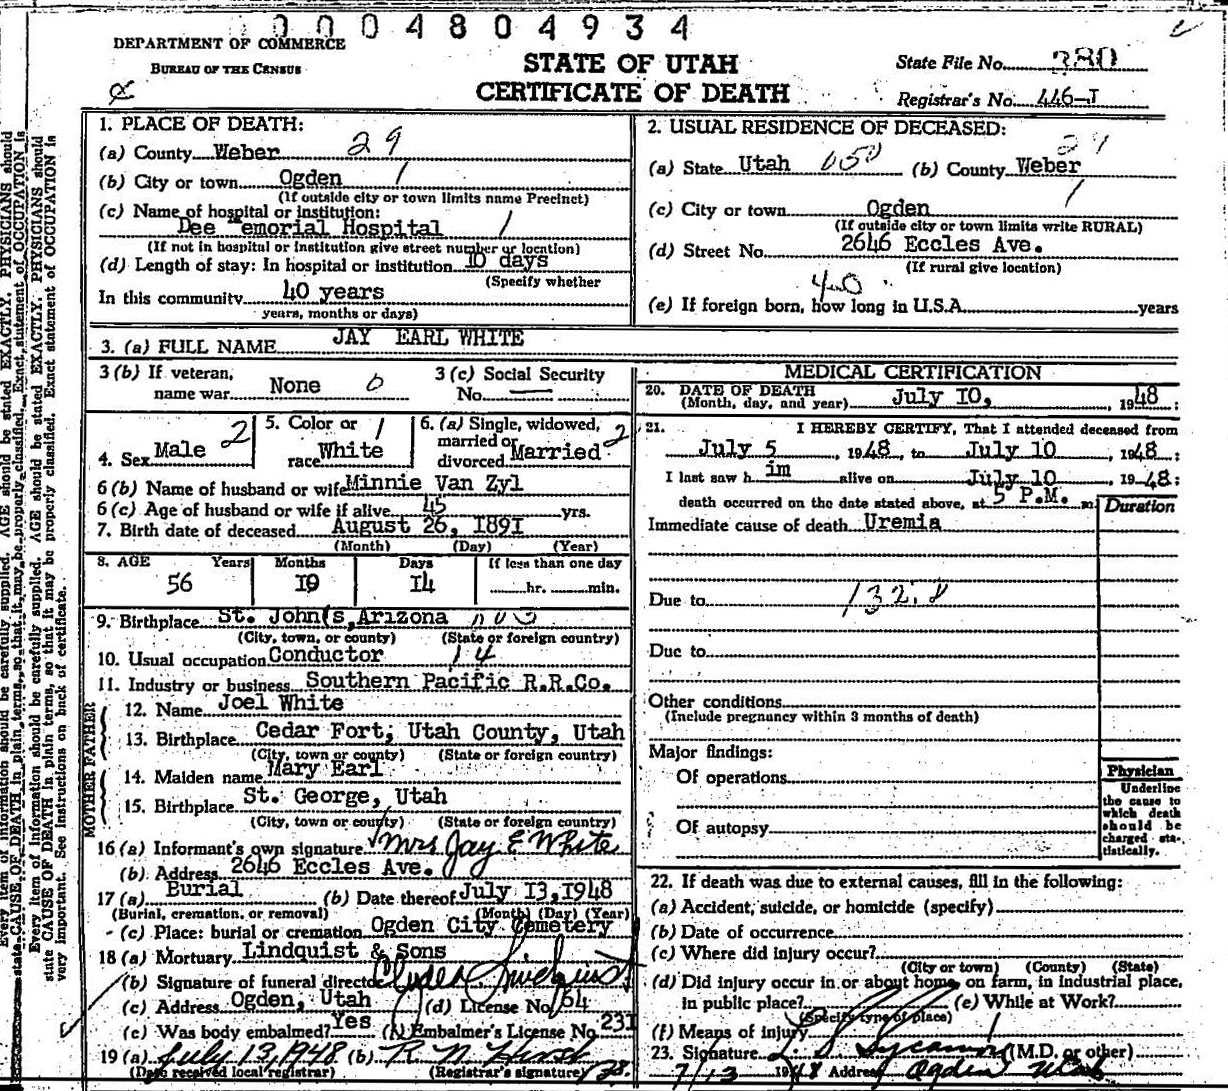 0004804934
DEPARTMENT OF COMMERCE
BUREAU OF THE CENSUS
STATE OF UTAH
CERTIFICATE OF DEATH
State File No. 380
Registrar's No. 446-J
1. PLACE OF DEATH: 29
(a) County Weber
(b) City or town Ogden 1
(If outside city or town limits name Precinct)
(c) Name of hospital or institution:
Dee emorial Hospital 1
(If not in hospital or institution give street number or location)
(d) Length of stay: In hospital or institution 10 days
(Specify whether
In this community 40 years
years, months or days)
2. USUAL RESIDENCE OF DECEASED:
(a) State Utah 050 (b) County Weber
(c) City or town Ogden 1
(If outside city or town limits write RURAL)
(d) Street No. 2646 Eccles Ave.
(If rural give location)
40
(e) If foreign born, how long in U.S.A. years
3. (a) FULL NAME JAY EARL WHITE
3 (b) If veteran, name war None 0
3 (c) Social Security No. —
4. Sex Male 2
5. Color or race White 1
6. (a) Single, widowed, married or divorced Married 2
6 (b) Name of husband or wife Minnie Van Zyl
6 (c) Age of husband or wife if alive 45 yrs.
7. Birth date of deceased August 26, 1891
(Month) (Day) (Year)
8. AGE Years Months Days If less than one day
56 10 14 hr. min.
9. Birthplace St. John(s, Arizona
(City, town, or county) (State or foreign country)
10. Usual occupation Conductor 14
11. Industry or business Southern Pacific R.R.Co.
FATHER
12. Name Joel White
13. Birthplace Cedar Fort; Utah County, Utah
(City, town or county) (State or foreign country)
MOTHER
14. Maiden name Mary Earl
15. Birthplace St. George, Utah
(City, town or county) (State or foreign country)
16 (a) Informant's own signature Mrs Jay E White
(b) Address 2646 Eccles Ave.
17 (a) Burial (b) Date thereof July 13, 1948
(Burial, cremation, or removal) (Month) (Day) (Year)
(c) Place: burial or cremation Ogden City Cemetery
18 (a) Mortuary Lindquist & Sons
(b) Signature of funeral director Clyde Lindquist
(c) Address Ogden, Utah (d) License No. 164
(e) Was body embalmed? Yes (f) Embalmer's License No. 231
19 (a) July 13, 1948 (b) R N Hirst
(Date received local registrar) (Registrar's signature)
MEDICAL CERTIFICATION
20. DATE OF DEATH
(Month, day, and year) July 10, 1948;
21. I HEREBY CERTIFY, That I attended deceased from
July 5, 1948, to July 10, 1948;
I last saw him alive on July 10, 1948;
death occurred on the date stated above, at 5 P.M. m.
Duration
Immediate cause of death Uremia
Due to 132.
Due to
Other conditions
(Include pregnancy within 3 months of death)
Major findings:
Of operations
Of autopsy
Physician
Underline
the cause to
which death
should be
charged sta-
tistically.
22. If death was due to external causes, fill in the following:
(a) Accident, suicide, or homicide (specify)
(b) Date of occurrence
(c) Where did injury occur?
(City or town) (County) (State)
(d) Did injury occur in or about home, on farm, in industrial place,
in public place? (e) While at Work?
(Specify type of place)
(f) Means of injury
23. Signature (M.D. or other)
7/13 1948 Address Ogden Utah
Every item of information should be carefully supplied. AGE should be stated EXACTLY. PHYSICIANS should
state CAUSE OF DEATH in plain terms, so that it may be properly classified. Exact statement of OCCUPATION is
Every item of information should be carefully supplied. AGE should be stated EXACTLY. PHYSICIANS should
state CAUSE OF DEATH in plain terms, so that it may be properly classified. Exact statement of OCCUPATION in
very important. See instructions on back of certificate.